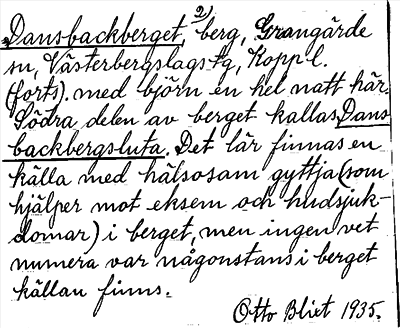 Dansbackberget, 2) berg, Grangärde
sn, Västerbergslags tg, Kopp. l.
(forts). med björn en hel natt här.
Södra delen av berget kallas Dans-
backbergsluta. Det lär finnas en
källa med hälsosam gyttja (som
hjälper mot eksem och hudsjuk-
domar) i berget, men ingen vet
numera var någonstans i berget
källan finns.
Otto Blixt 1935.